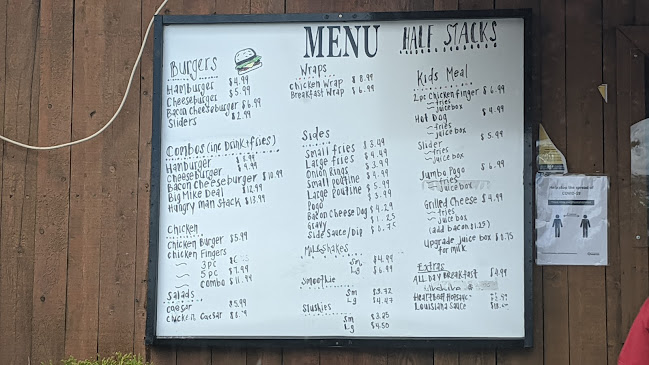 MENU HALF STACKS
Burgers
Hamburger $4.99
Cheeseburger $5.99
Bacon Cheeseburger $6.99
Sliders $2.99
Combos (inc Drink + fries)
Hamburger
Cheeseburger $9.99
Bacon Cheeseburger $10.99
Big Mike Deal $12.99
Hungry man Stack $13.99
Chicken
Chicken Burger $5.99
Chicken Fingers
3pc
5pc $7.99
combo $11.99
Salads
Caesar $5.99
Chicken Caesar
Wraps
Chicken Wrap $8.99
Breakfast Wrap $6.99
Sides
Small fries $3.49
Large fries $4.49
Onion Rings $3.99
Small Poutine $4.99
Large Poutine $5.99
Pogo $3.99
Bacon Cheese Dog $4.29
Gravy $1.25
Side Sauce/Dip $0.75
Milkshakes
Sm $4.99
Lg $6.99
Smoothie
Sm $3.72
Lg $4.47
Slushies
Sm $3.25
Lg $4.50
Kids Meal
2pc Chicken finger $6.99
fries
juice box
Hot Dog $4.99
fries
juice box
Slider $5.99
fries
juice box
Jumbo Pogo $6.99
fries
juice box
Grilled Cheese $4.99
fries
juice box
(add bacon $1.25)
Upgrade juice box $0.75
for milk
Extras
ALL DAY BREAKFAST $4.99
Louisiana Sauce